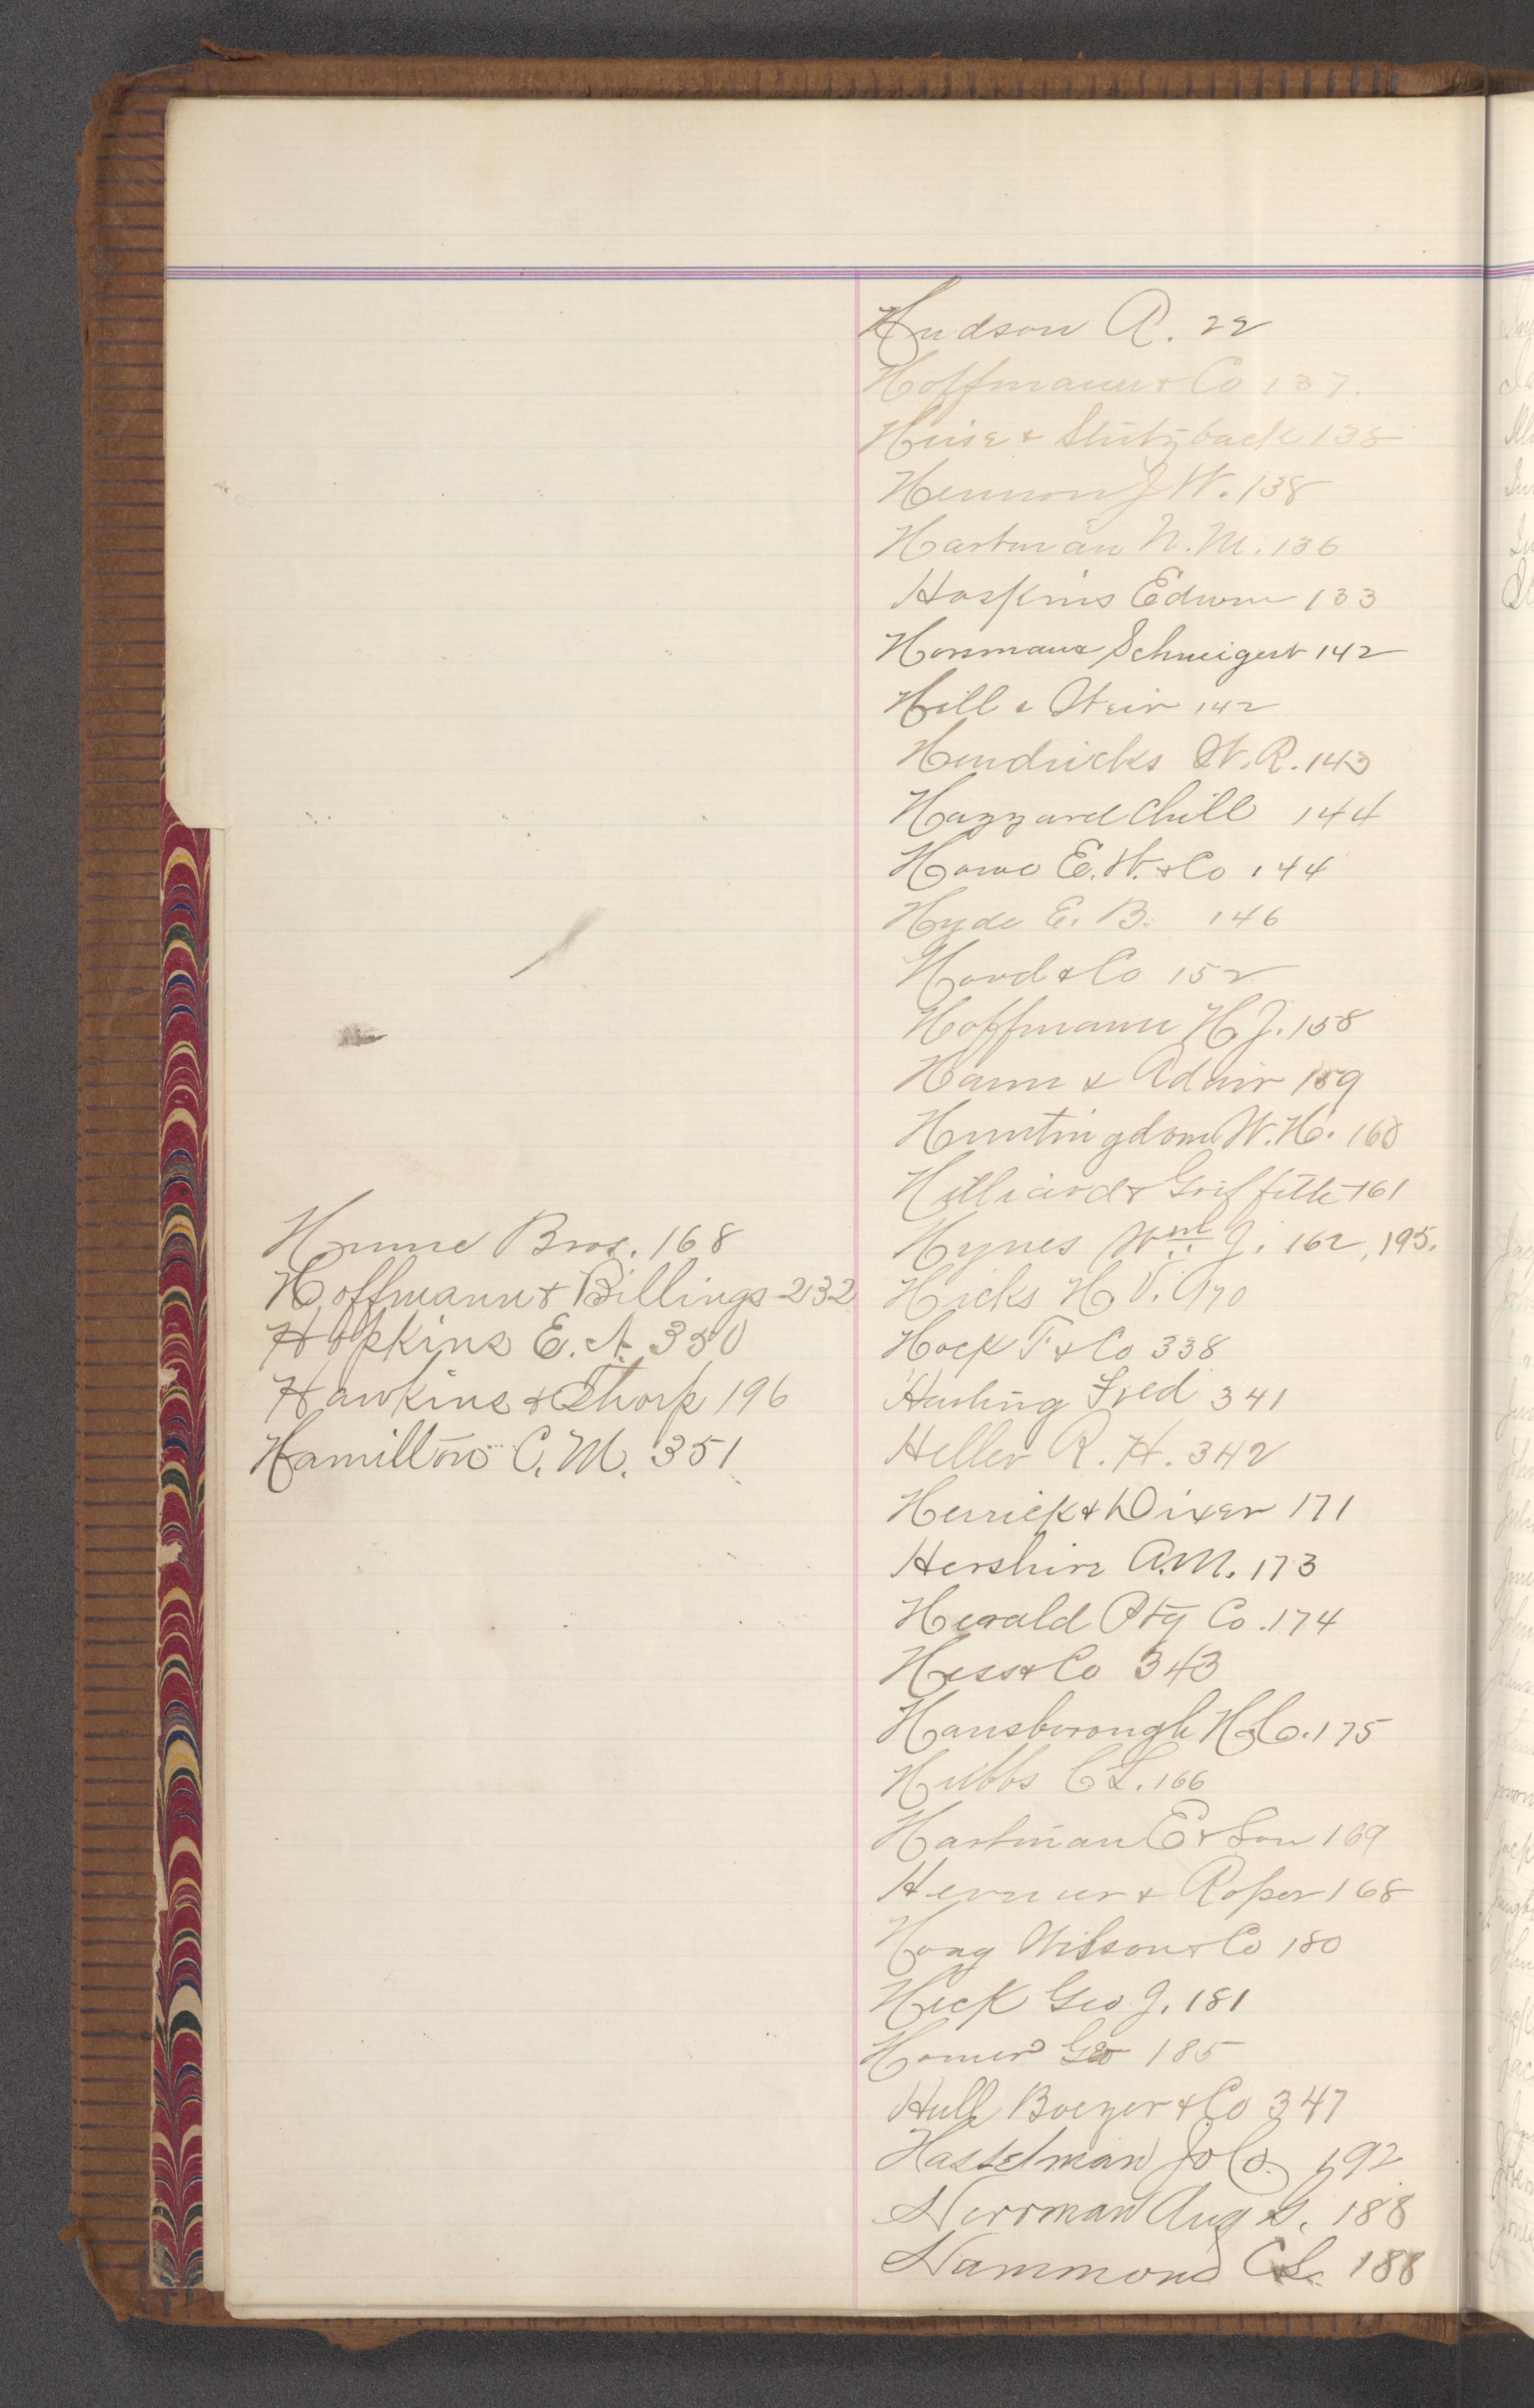 Hume Bros. 168
Hoffmann & Billings 232
Hopkins E. A. 350
Hawkins & Thorp 196
Hamilton C. M. 351
Hudson A. 22
Hoffmann & Co 137.
Heise & Stutzback 138
Hennon J W. 138
Hartman N. M. 136
Hoskins Edwin 133
Horsman & Schweigert 142
Hill & Weir 142
Hendricks W. R. 143
Hazzard Chill 144
Howe E. W. & Co 144
Hyde E. B. 146
Hord & Co 152
Hoffmann H J. 158
Hann & Adair 159
Huntingdon W. H. 160
Hilliard & Griffith 161
Hynes Wm J. 162, 195.
Hicks H V. 170
Hock F & Co 338
Harling Fred 341
Heller R. H. 342
Herrick & Dixer 171
Hershire A.M. 173
Herald Ptg Co. 174
Hess & Co 343
Hansborough H C. 175
Hubbs C L. 166
Hartman E & Son 169
& Roper 168
Hoag Wilson & Co 180
Heck Geo J. 181
Homer Geo 185
Hull Boezer & Co 347
Hasselman Jo Co. 192
Herrman Aug G. 188
Hammond C L. 188